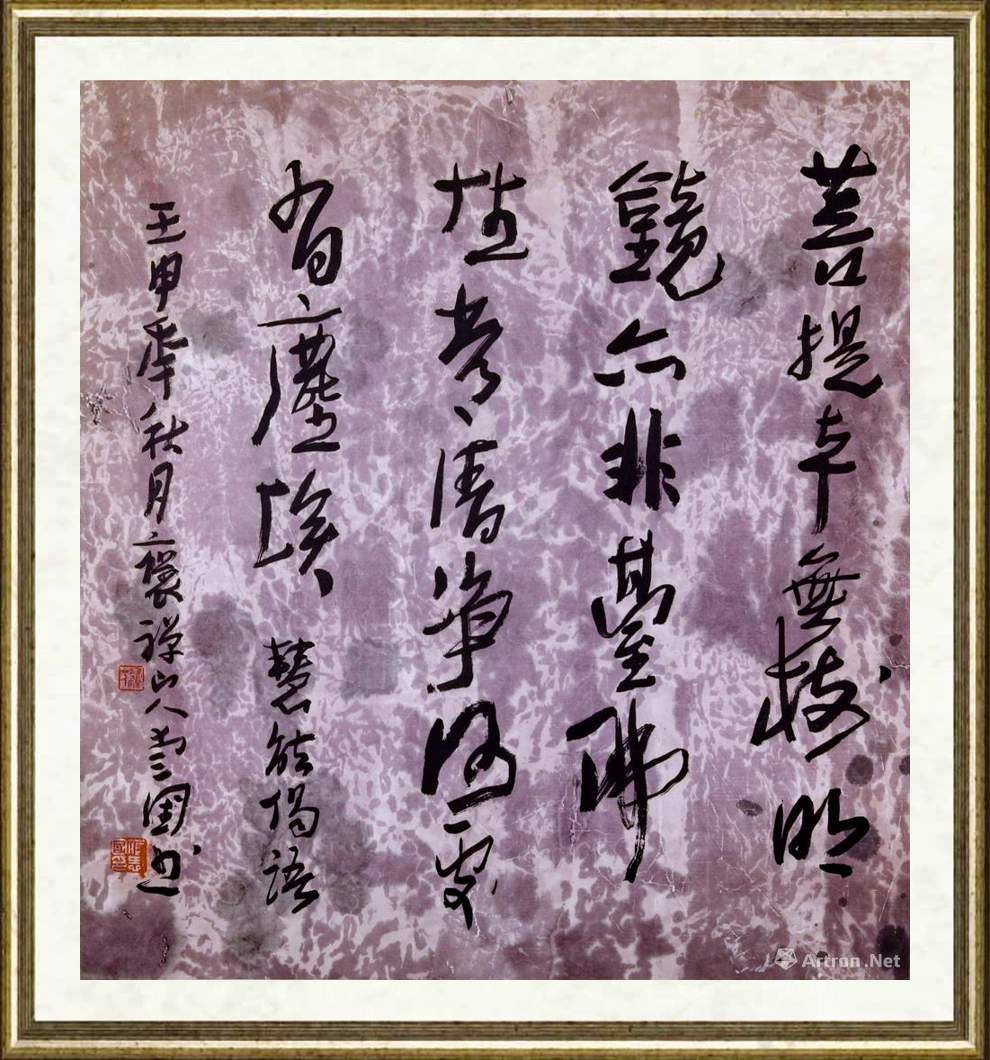 菩提本無樹明
鏡亦非臺佛
性常清淨何處
有塵埃 慧能偈語
壬申年秋月禪山人书
Artron.Net